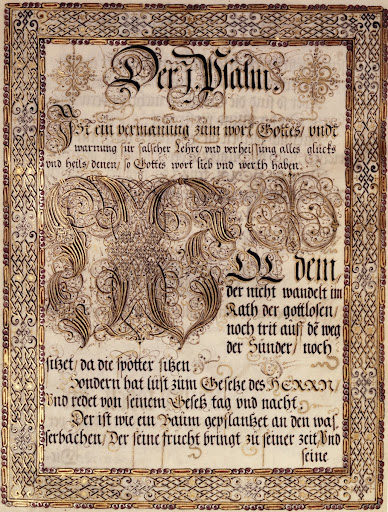 Der j. Psalm.
Ist ein vermanung zum wort Gottes/ undt
warnung für falscher Lehre/ und verheissung alles glücks
und heils/ denen/ so Gottes wort lieb und werth haben.
WOL dem/
der nicht wandelt im
Rath der gottlosen/
noch trit auff dē weg
der Sünder/ noch
sitzet/ da die spötter sitzen
Sondern hat lust zum Gesetze des HERRN/
Und redet von seinem Gesetz tag und nacht
Der ist wie ein Baum gepflantzet an den was,
serbächen/ Der seine frucht bringt zu seiner zeit/ Und
seine